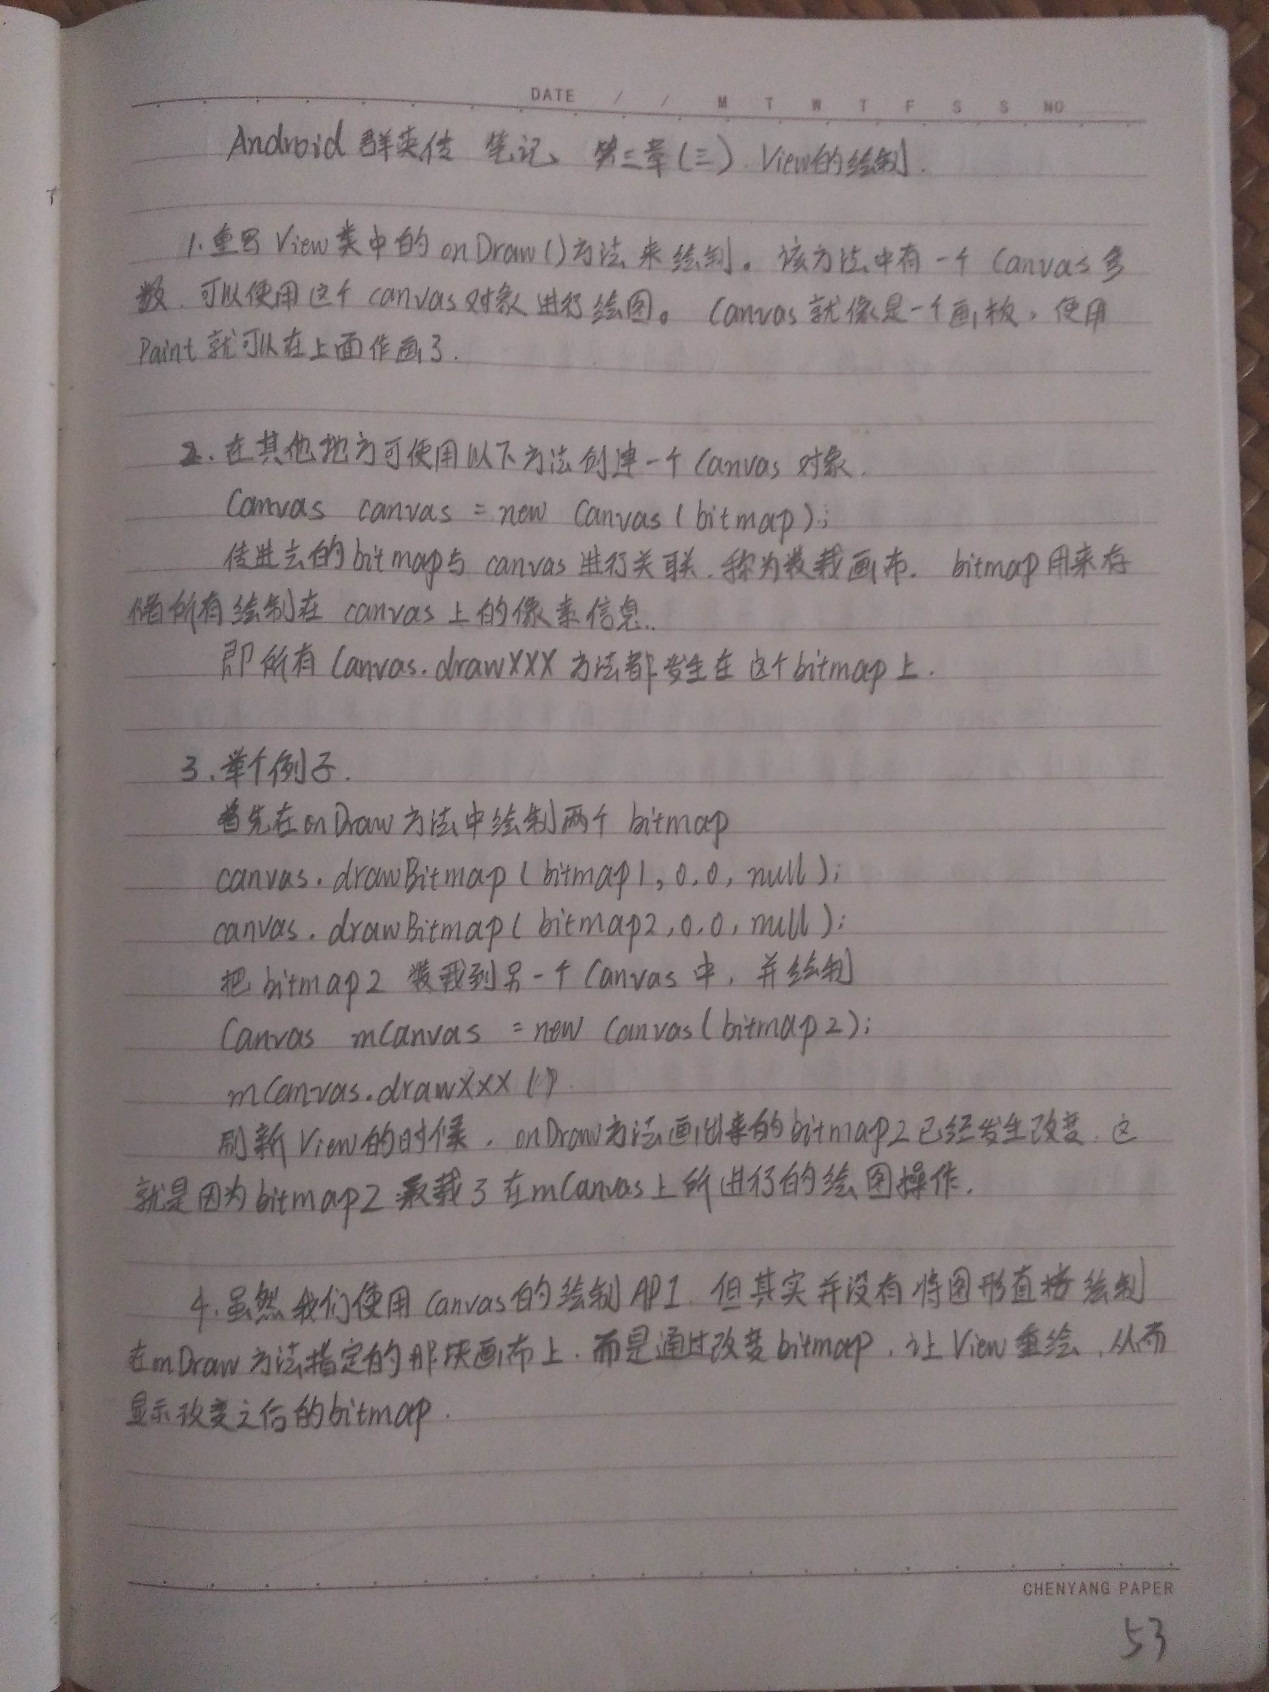 DATE / / M T W T F S S NO
Android 群英传 笔记、第三章(三).View的绘制.
1.重写View类中的onDraw()方法来绘制。该方法中有一个Canvas参
数.可以使用这个canvas对象进行绘图。Canvas就像是一个画板,使用
Paint就可以在上面作画了.
2.在其他地方可使用以下方法创建一个Canvas对象.
Canvas canvas = new Canvas(bitmap);
传进去的bitmap与canvas进行关联.称为装载画布.bitmap用来存
储所有绘制在canvas上的像素信息.
即所有Canvas.drawXXX方法都发生在这个bitmap上.
3.举个例子.
首先在onDraw方法中绘制两个bitmap
canvas.drawBitmap(bitmap1,0,0,null);
canvas.drawBitmap(bitmap2,0,0,null);
把bitmap2装载到另一个Canvas中,并绘制
Canvas mCanvas = new Canvas(bitmap2);
mCanvas.drawXXX()
刷新View的时候,onDraw方法画出来的bitmap2已经发生改变.这
就是因为bitmap2承载了在mCanvas上所进行的绘图操作.
4.虽然我们使用Canvas的绘制API.但其实并没有将图形直接绘制
在onDraw方法指定的那块画布上.而是通过改变bitmap,让View重绘,从而
显示改变之后的bitmap.
CHENYANG PAPER
53